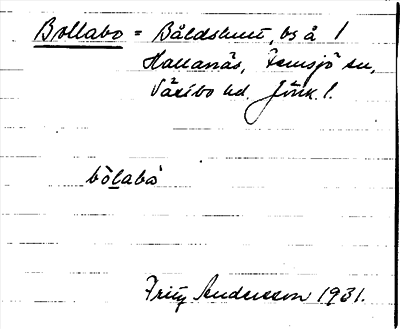 Bollabo = Båldshult, bs å 1
Hallanäs, Femsjö sn,
Västbo hd. Jönk. l.
bòlabò
Fritz Andersson 1931.